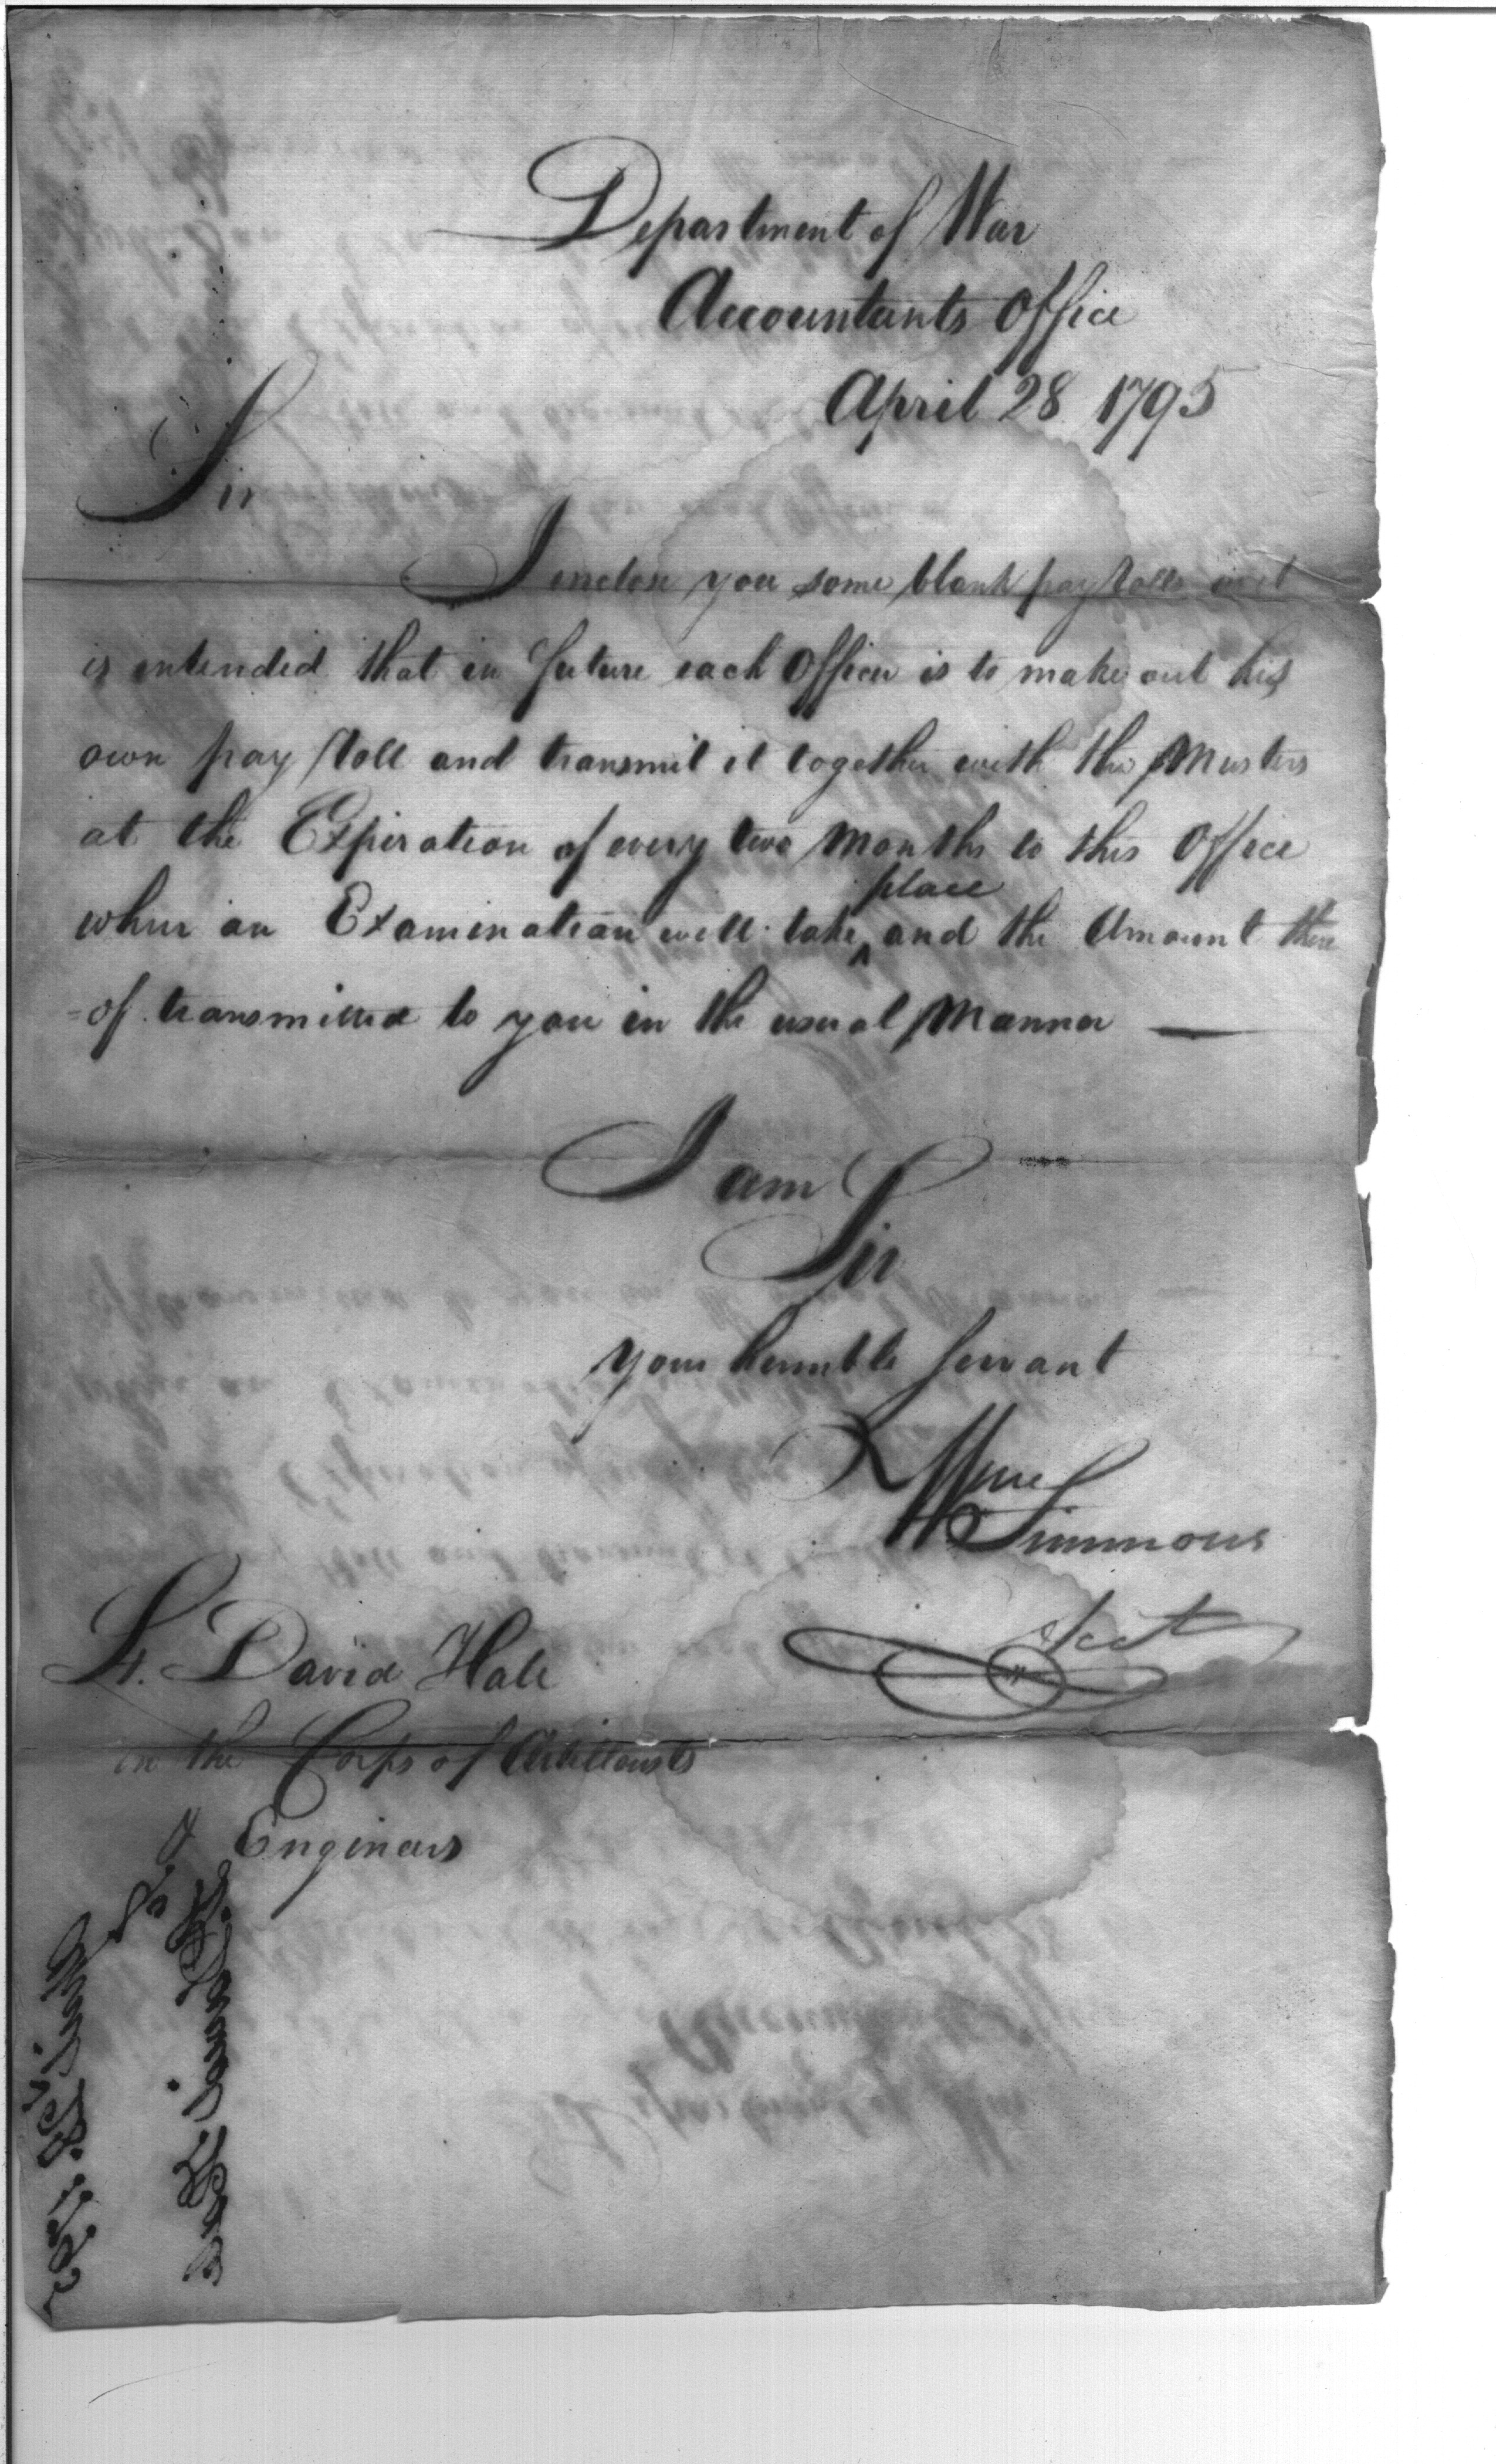 Department of War
Accountants Office
April 28 1795
Sir
I enclose you some blank pay Rolls as it
is intended that in future each Officer is to make out his
own pay Roll and transmit it together with the Musters
at the Expiration of every two Months to this Office
place
when an Examination will take ^ and the Amount there
=of transmitted to you in the usual Manner —
I am
Sir
your humble Servant
Wm
Simmons
Lt. David Hale
in the Corps of Artillerists
& Engineers